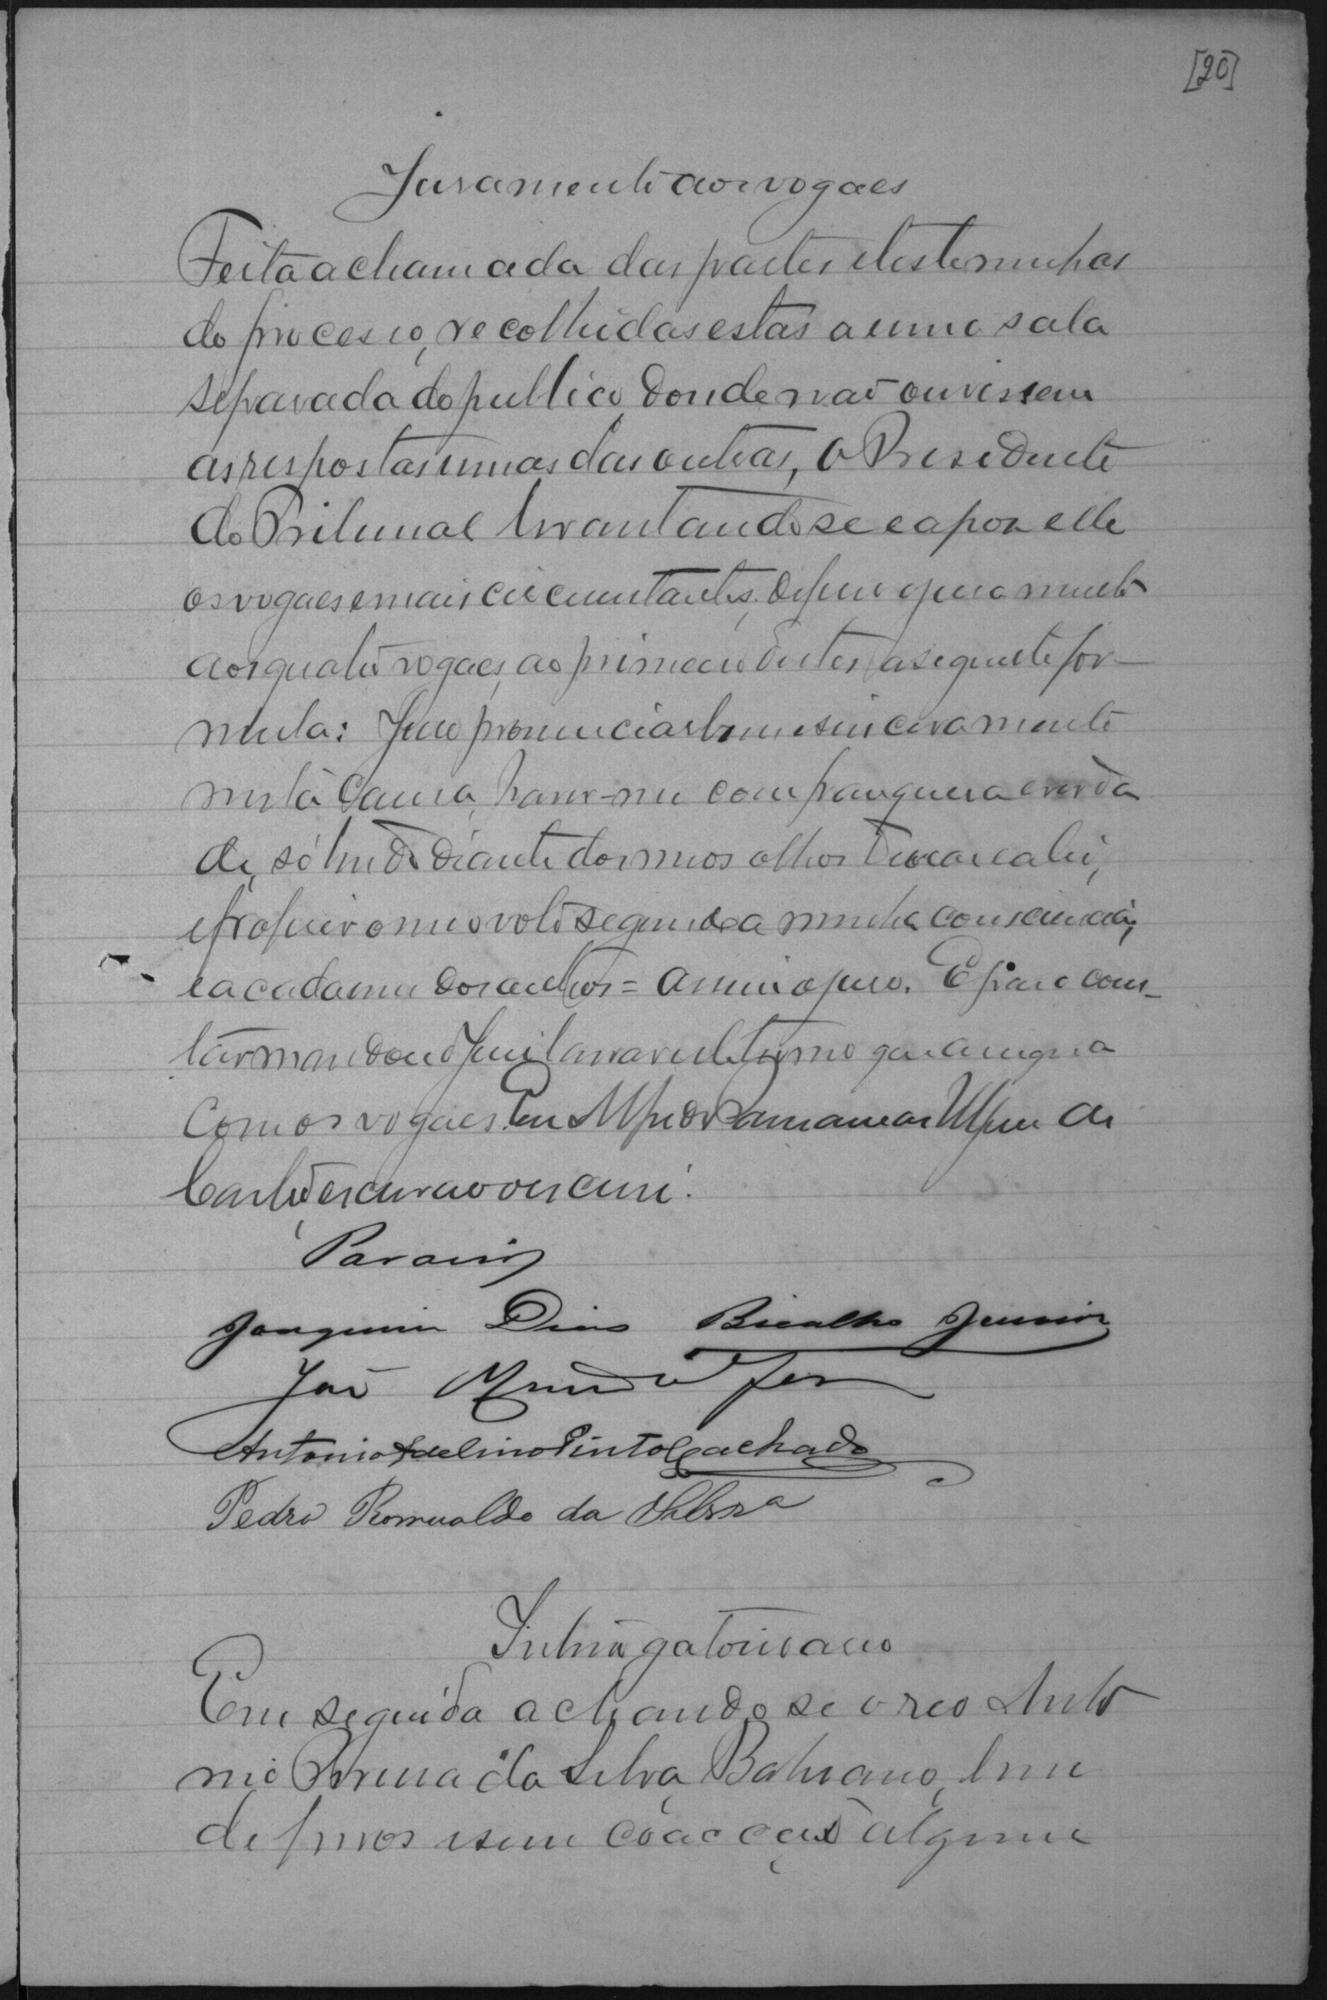 [20]
Juramento aos vogaes
Feita a chamada das partes e testemunhas
do processo, recolhidas estas a uma sala
separada do publico donde não ouvissem
as respostas umas das outras, o Presidente
do Tribunal levantando se e apoz elle
os vogaes e mais circumstantes, deferio o juramento
aos quatro vogaes, ao primeiro destes a seguinte for-
mula: Juro pronunciar bem e sinceramente
nesta causa, haver-me com franqueza e verda
de, só tendo diante dos meos olhos Deos e a lei,
e proferir o meo voto segundo a minha consciencia,
e a cada um dos outros = assim o juro. E para cons-
tar mandou o Juiz lavrar este termo que assigna
com os vogaes. Eu Alfredo
Castro, escrivão o escrevi.
Joaquim Dias Bicalho Junior
João
Antonio Adelino Pinto Machado
Pedro Romualdo da Silva
Interrogatorio ao reo
Em seguida achando se o reo Anto
nio Pereira da Silva Bahiano, livre
de ferros e sem coacção alguma